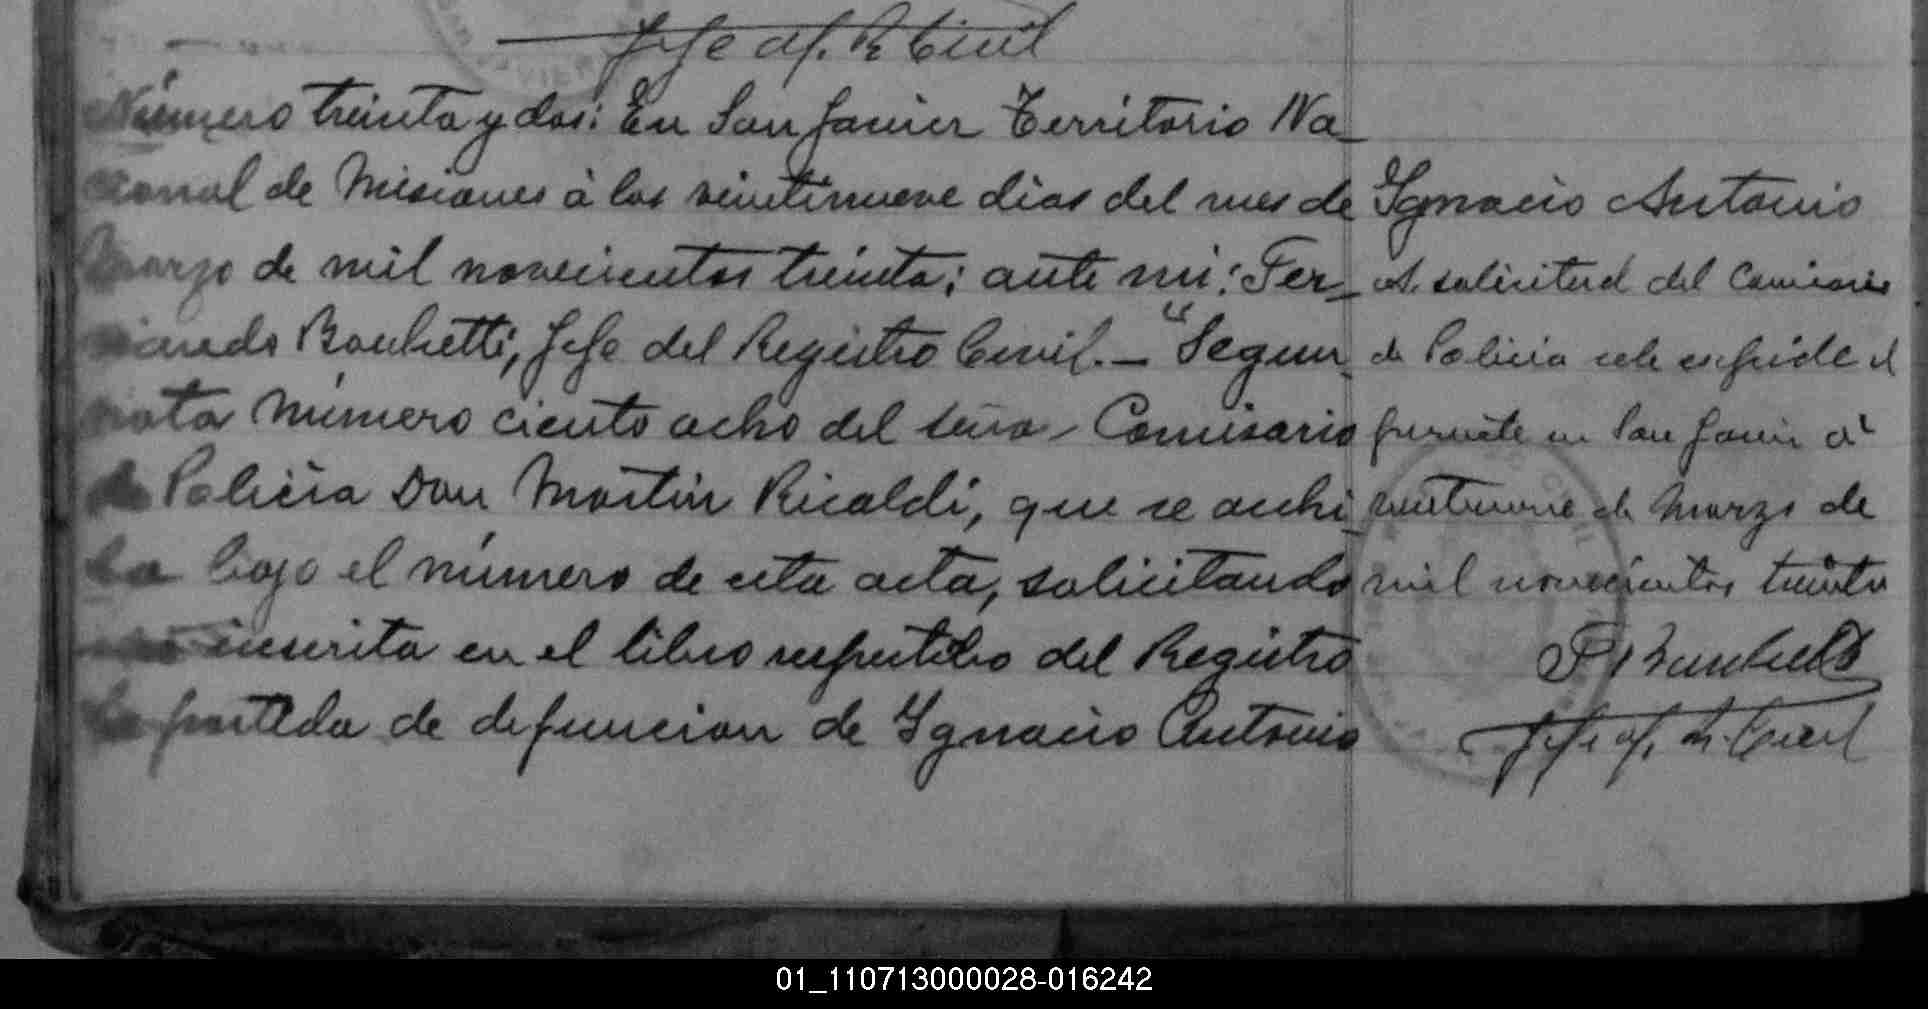 Jefe of. R. Civil
Número treinta y dos: En San Javier Territorio Na_
cional de Misiones à los veintinueve dias del mes de
Marzo de mil novecientos treinta; ante mi: Fer_
nando Jefe del Registro Civil. — "Segun
nota número ciento ocho del señor Comisario
de Policia Don Martin Ricaldi, que se archi_
va bajo el número de esta acta, solicitando
inscrita en el libro respectibo del Registro
la partida de defuncion de Ygnacio Antonio
Ygnacio Antonio
A solicitud del Comisario
de Policia se le expide el
presente en San Javier à
veintinueve de Marzo de
mil novecientos treinta
Jefe of. R. Civil
01_110713000028-016242